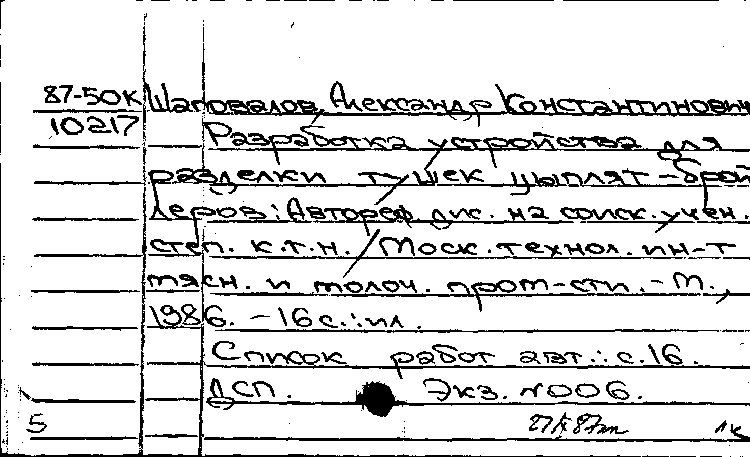 87-50к Шаповалов, Александр Константинович
10217 Разработка устройства для
разделки тушек цыплят-брой
леров: Автореф. дис. на соиск. учен.
степ. к.т.н. / Моск. технол. ин-т
мясн. и молоч. пром-сти. - М.,
1986. - 16 с.: ил.
Список работ авт.: с. 16.
ДСП. Экз. №006.
5